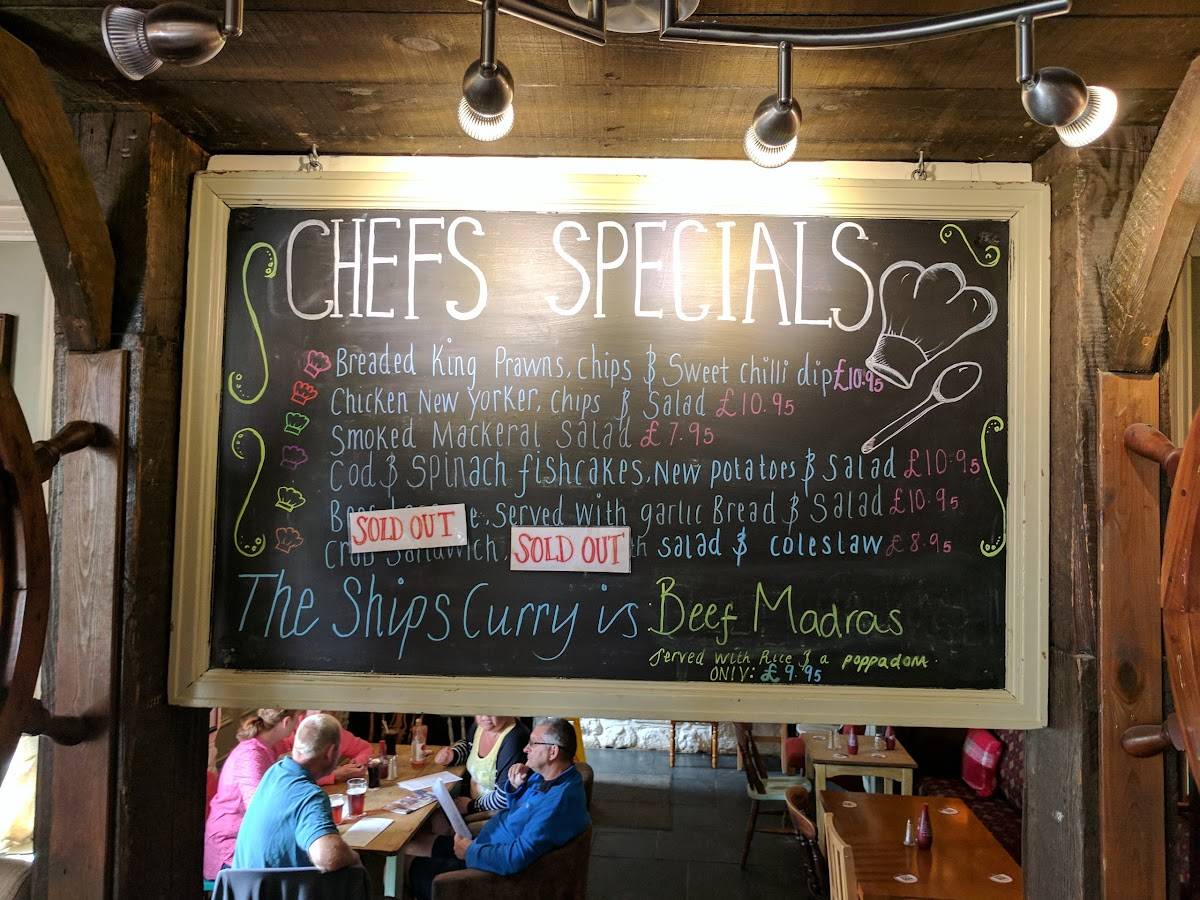 CHEFS SPECIALS
Breaded King Prawns, chips & Sweet chilli dip £10.95
Chicken New Yorker, chips & Salad £10.95
Smoked Mackeral Salad £7.95
Cod & Spinach fishcakes, New potatoes & salad £10.95
SOLD OUT served with garlic Bread & Salad £10.95
Crab Sandwich SOLD OUT salad & coleslaw £8.95
The Ships Curry is Beef Madras
Served with Rice & a poppadom.
ONLY: £9.95